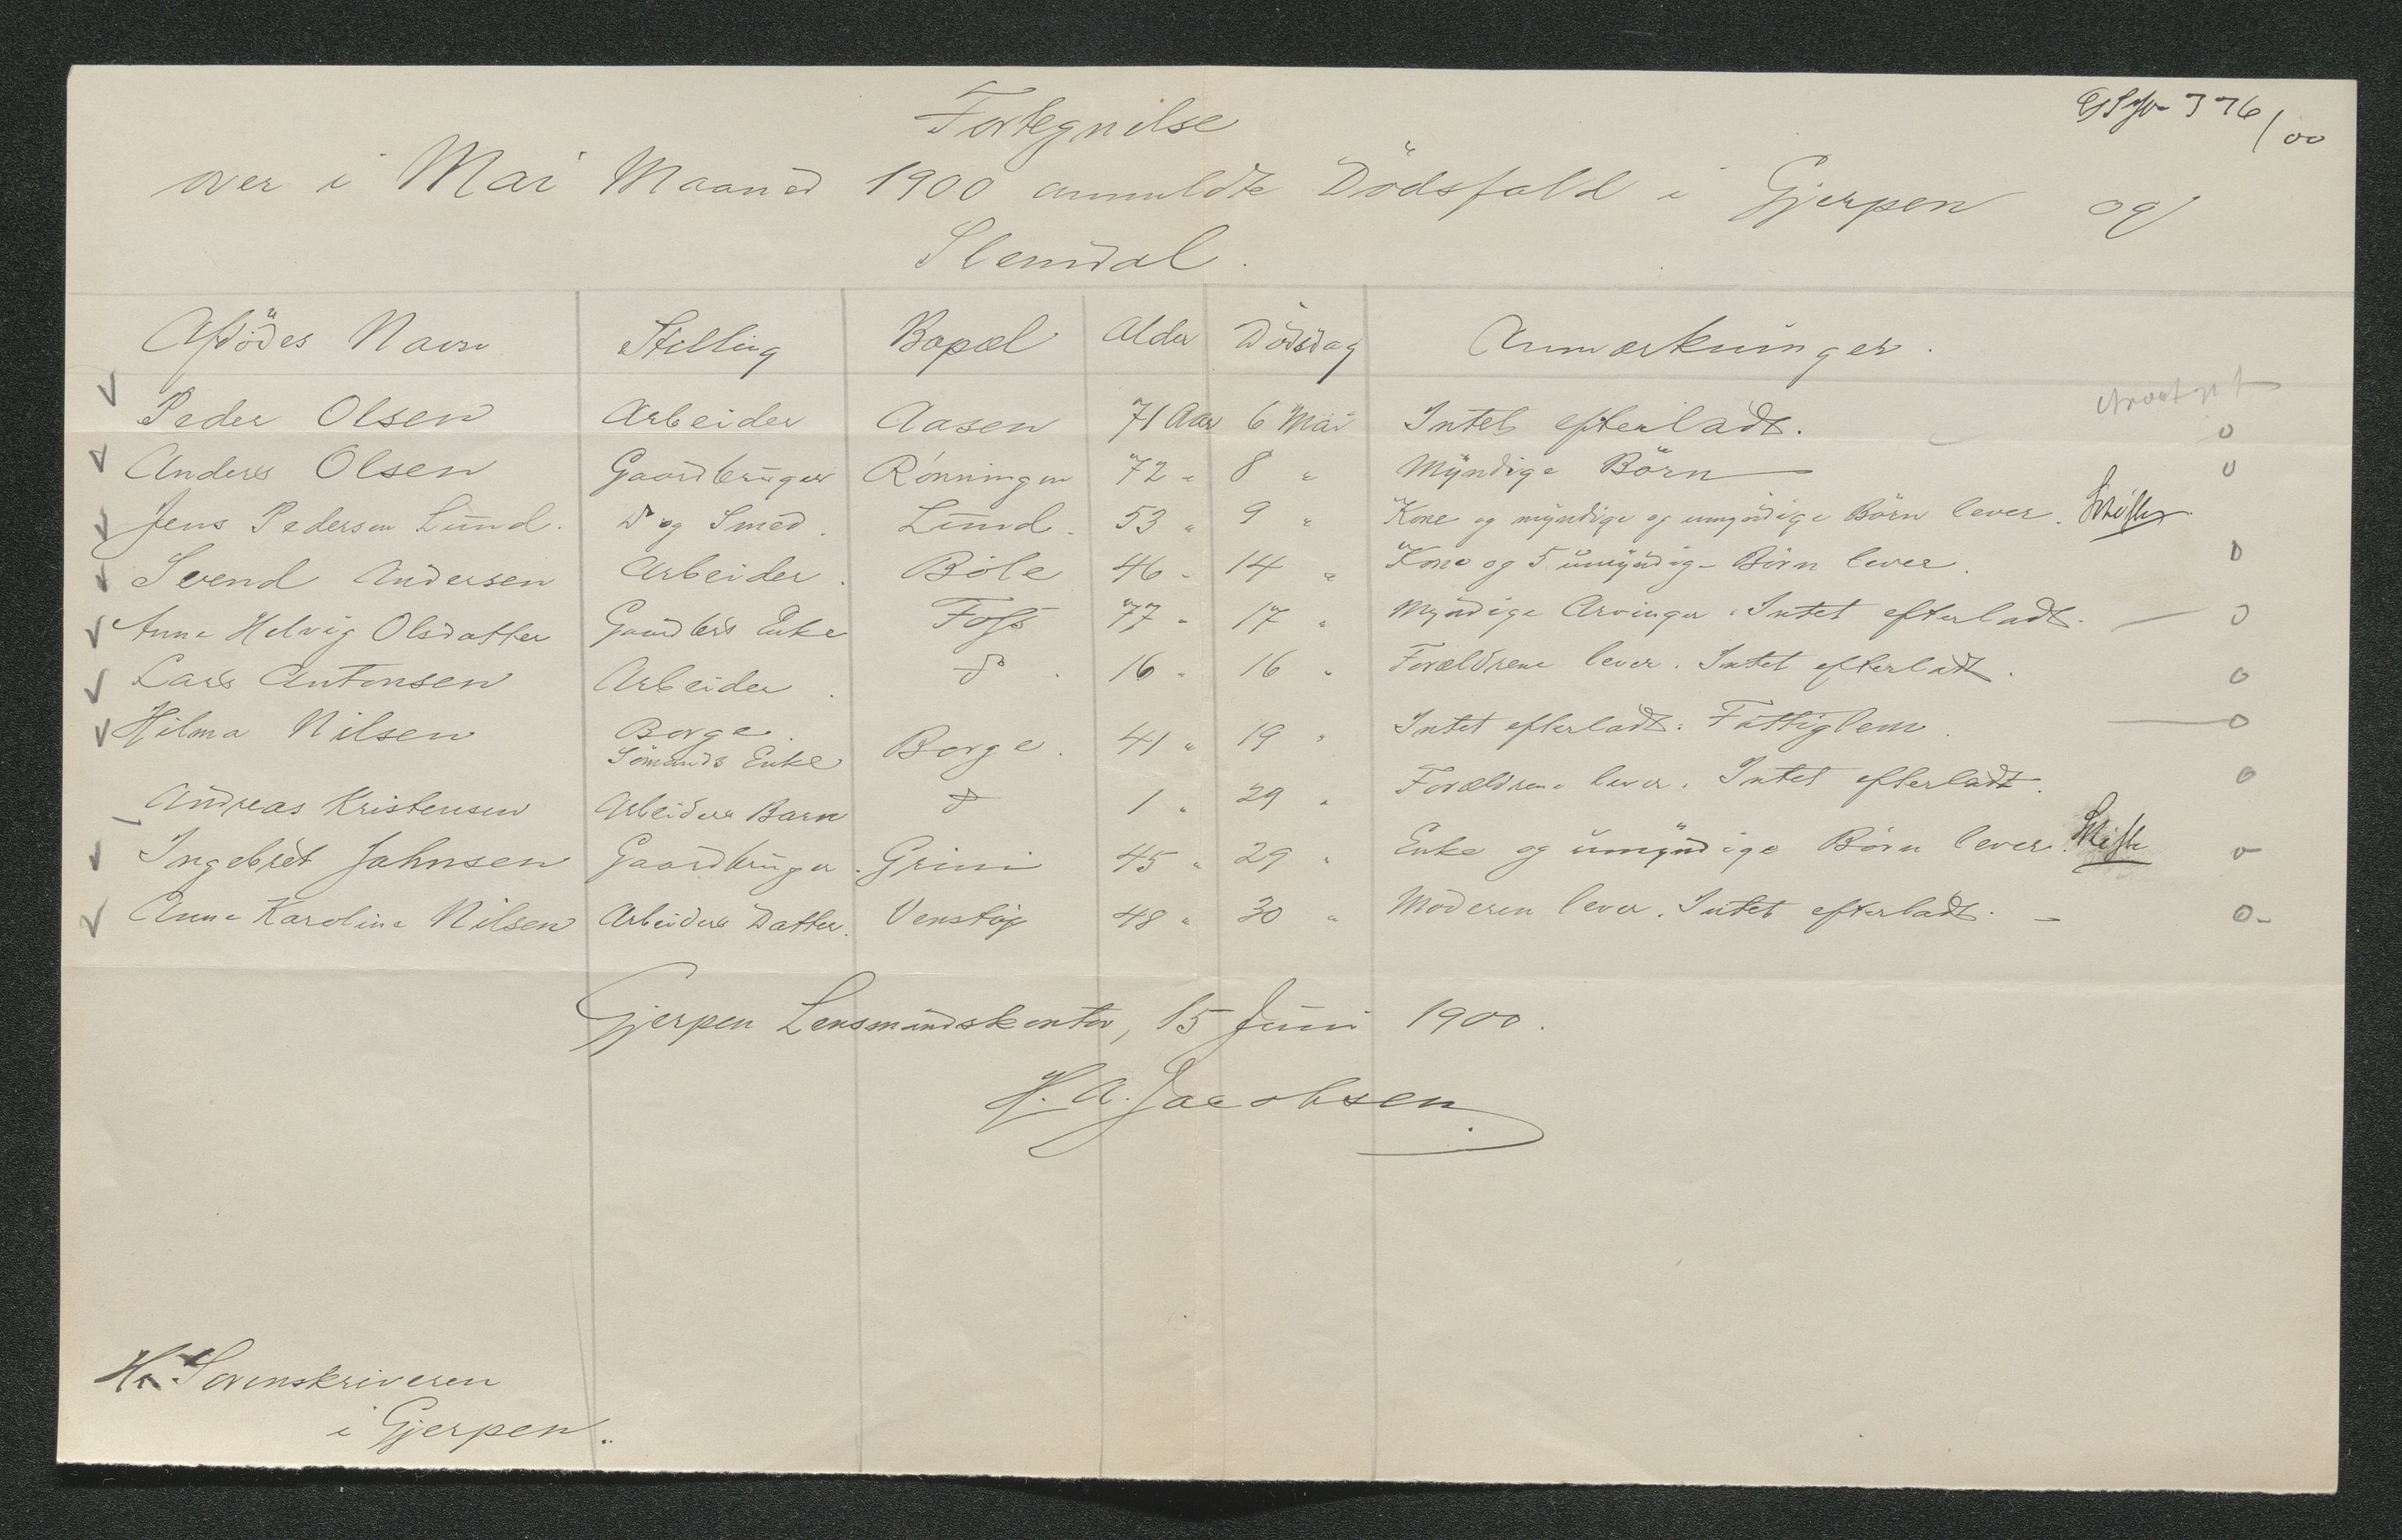 376/00
Fortegnelse
over i Mai Maaned 1900 anmeldte Dödsfald i Gjerpen og
Slemdal.
Afdödes Navn Stilling Bopæl Alder Dödsdag Anmærkninger.
Peder Olsen Arbeider Aasen 71 Aar 6 Mai Intet efterladt. 0
Anders Olsen Gaardbruger Rönningen 72 " 8 " Myndige Börn 0
Jens Pedersen Lund. Do og Smed. Lund. 53 " 9 " Kone og myndige og umyndige Börn lever. Skifte
Svend Andersen Arbeider. Böle 46 " 14 " Kone og 5 umyndige Börn lever. 0
Anne Helvig Olsdatter Gaardbrs Enke Foss 77 " 17 " Myndige Arvinger. Intet efterladt. 0
Lars Antonsen Arbeider. do. 16 " 16 " Forældrene lever. Intet efterladt. 0
Hilma Nilsen Borge. Sömands Enke Borge. 41 " 19 " Intet efterladt. Fattiglem. 0
Andreas Kristensen Arbeiders Barn do 1 " 29 " Forældrene lever. Intet efterladt. 0
Ingebret Jahnsen Gaardbruger. Grini 45 " 29 " Enke og umyndige Börn lever. Skifte 0
Anne Karoline Nilsen Arbeiders Datter. Venstöp 48 " 30 " Moderen lever. Intet efterladt. 0
Gjerpen Lensmandskontor, 15 Juni 1900.
H. A. Jacobsen
Hr Sorenskriveren
i Gjerpen.